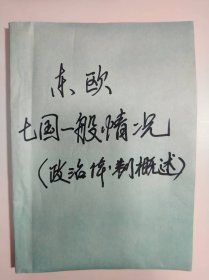 东欧
七国一般情况
(政治体制概述)